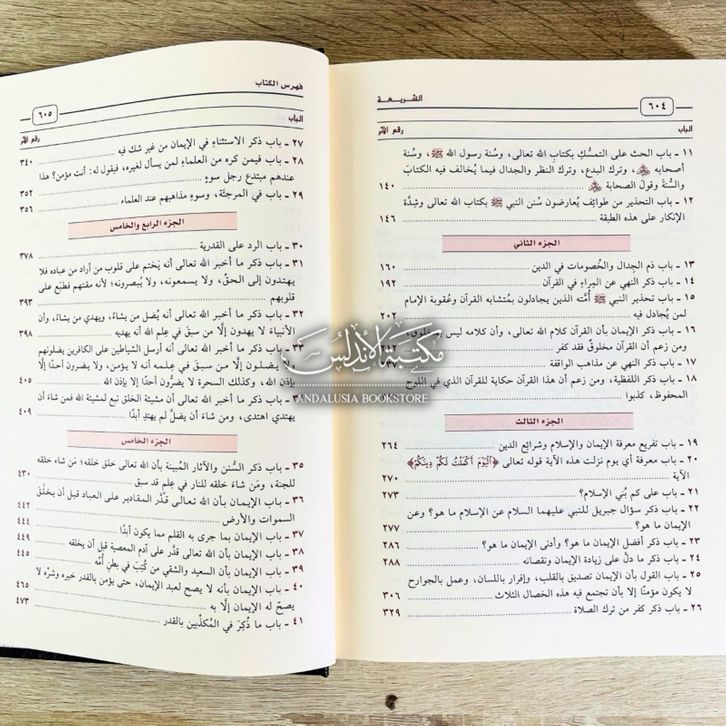 ٦٠٤
الشريعة
الباب
رقم الأثر
١١ ـ باب الحث على التمسُّكِ بكتابِ الله تعالى، وسُنة رسول الله ﷺ، وسُنة
أصحابه، وترك البدع، وترك النظر والجدال فيما يُخالف فيه الكتابَ
والسُّنةَ وقولَ الصحابة ١٤٠
١٢ ـ باب التحذير من طوائف يُعارضون سُنن النبي ﷺ بكتاب الله تعالى وشِدَّة
الإنكار على هذه الطبقة ١٤٦
الجزء الثاني
١٣ ـ باب ذم الجِدال والخُصومات في الدين ١٦٠
١٤ ـ باب ذكر النهي عن المِراء في القرآن ١٩٢
١٥ ـ باب تحذير النبي ﷺ أُمته الذين يجادلون بمُتشابه القرآن وعُقوبة الإمام
لمن يُجادل فيه ٢٠٢
١٦ ـ باب ذكر الإيمان بأن القرآن كلام الله تعالى، وأن كلامه ليس بمخلوق،
ومن زعم أن القرآن مخلوقٌ فقد كفر ٢١٢
١٧ ـ باب ذكر النهي عن مذاهب الواقفة
١٨ ـ باب ذكر اللفظية، ومن زعم أن هذا القرآن حكاية للقرآن الذي في اللوح
المحفوظ، كذبوا
الجزء الثالث
١٩ ـ باب تفريع معرفة الإيمان والإسلام وشرائع الدين ٢٦٤
٢٠ ـ باب معرفة أي يوم نزلت هذه الآية قوله تعالى ﴿الْيَوْمَ أَكْمَلْتُ لَكُمْ دِينَكُمْ﴾
الآية ٢٧٠
٢١ ـ باب على كم بُني الإسلام؟ ٢٧٣
٢٢ ـ باب ذكر سؤال جبريل للنبي عليهما السلام عن الإسلام ما هو؟ وعن
الإيمان ما هو؟ ٢٧٧
٢٣ ـ باب ذكر أفضل الإيمان ما هو؟ وأدنى الإيمان ما هو؟ ٢٨٦
٢٤ ـ باب ذكر ما دلَّ على زيادة الإيمان ونقصانه ٢٨٨
٢٥ ـ باب القول بأن الإيمان تصديق بالقلب، وإقرار باللسان، وعمل بالجوارح
لا يكون مؤمنًا إلا بأن تجتمع فيه هذه الخصال الثلاث ٣٠٦
٢٦ ـ باب ذكر كفر من ترك الصلاة ٣٢٩
فهرس الكتاب
٦٠٥
الباب
رقم الأثر
٢٧ ـ باب ذكر الاستثناء في الإيمان من غير شك فيه ٣٤٠
٢٨ ـ باب فيمن كره من العلماء لمن يسأل لغيره، فيقول له: أنت مؤمن؟ هذا
عندهم مبتدع رجل سوء ٣٥٢
٢٩ ـ باب في المرجئة، وسوء مذاهبهم عند العلماء ٣٥٦
الجزء الرابع والخامس
٣٠ ـ باب الرد على القدرية ٣٧٨
٣١ ـ باب ذكر ما أخبر الله تعالى أنه يَختم على قلوب من أراد من عباده فلا
يهتدون إلى الحقِّ، ولا يسمعونه، ولا يُبصرونه؛ لأنه مقتهم فطبَع على
قلوبهم ٣٩٣
٣٢ ـ باب ذكر ما أخبر الله تعالى أنه يُضل من يشاءُ، ويهدي من يشاءُ، وأن
الأنبياءَ لا يهدون إلَّا من سبقَ في عِلم الله أنه يهديه ٣٩٨
٣٣ ـ باب ذكر ما أخبر الله تعالى أنه أرسل الشياطين على الكافرين يضلونهم
ولا يضلون إلَّا من سبق في عِلمه أنه لا يؤمن، ولا يضرون أحدًا إلَّا
بإذن الله، وكذلك السحرة لا يضرون أحدًا إلا بإذن الله ٤٠٥
باب ذكر ما أخبر الله تعالى أن مشيئة الخلق تبع لمشيئة الله فمن شاءَ أن
يهتدي اهتدى، ومن شاءَ أن يضلَّ لم يهتدِ أبدًا ٤٠٩
الجزء الخامس
٣٥ ـ باب ذكر السُّنن والآثار المُبينة بأن الله تعالى خلق خلقه؛ مَن شاءَ خلقه
للجنة، ومَن شاءَ خلقه للنار في عِلم قد سبق ٤٣٠
٣٦ ـ باب الإيمان بأن الله تعالى قدَّر المقادير على العباد قبل أن يخلق
السموات والأرض ٤٤٢
٣٧ ـ باب الإيمان بما جرى به القلم مما يكون أبدًا ٤٤٤
٣٨ ـ باب الإيمان بأن الله تعالى قدَّر على آدم المعصية قبل أن يخلقه ٤٤٥
٣٩ ـ باب الإيمان بأن السعيد والشقي من كُتِبَ في بطنِ أُمِّه
٤٠ ـ باب الإيمان بأنه لا يصح لعبد الإيمان، حتى يؤمن بالقدر خيره وشرِّه لا
يصحّ له الإيمان إلَّا به ٤٦٥
٤١ ـ باب ما ذُكِرَ في المكذِّبين بالقدر ٤٧٣
مكتبة الأندلس
ANDALUSIA BOOKSTORE